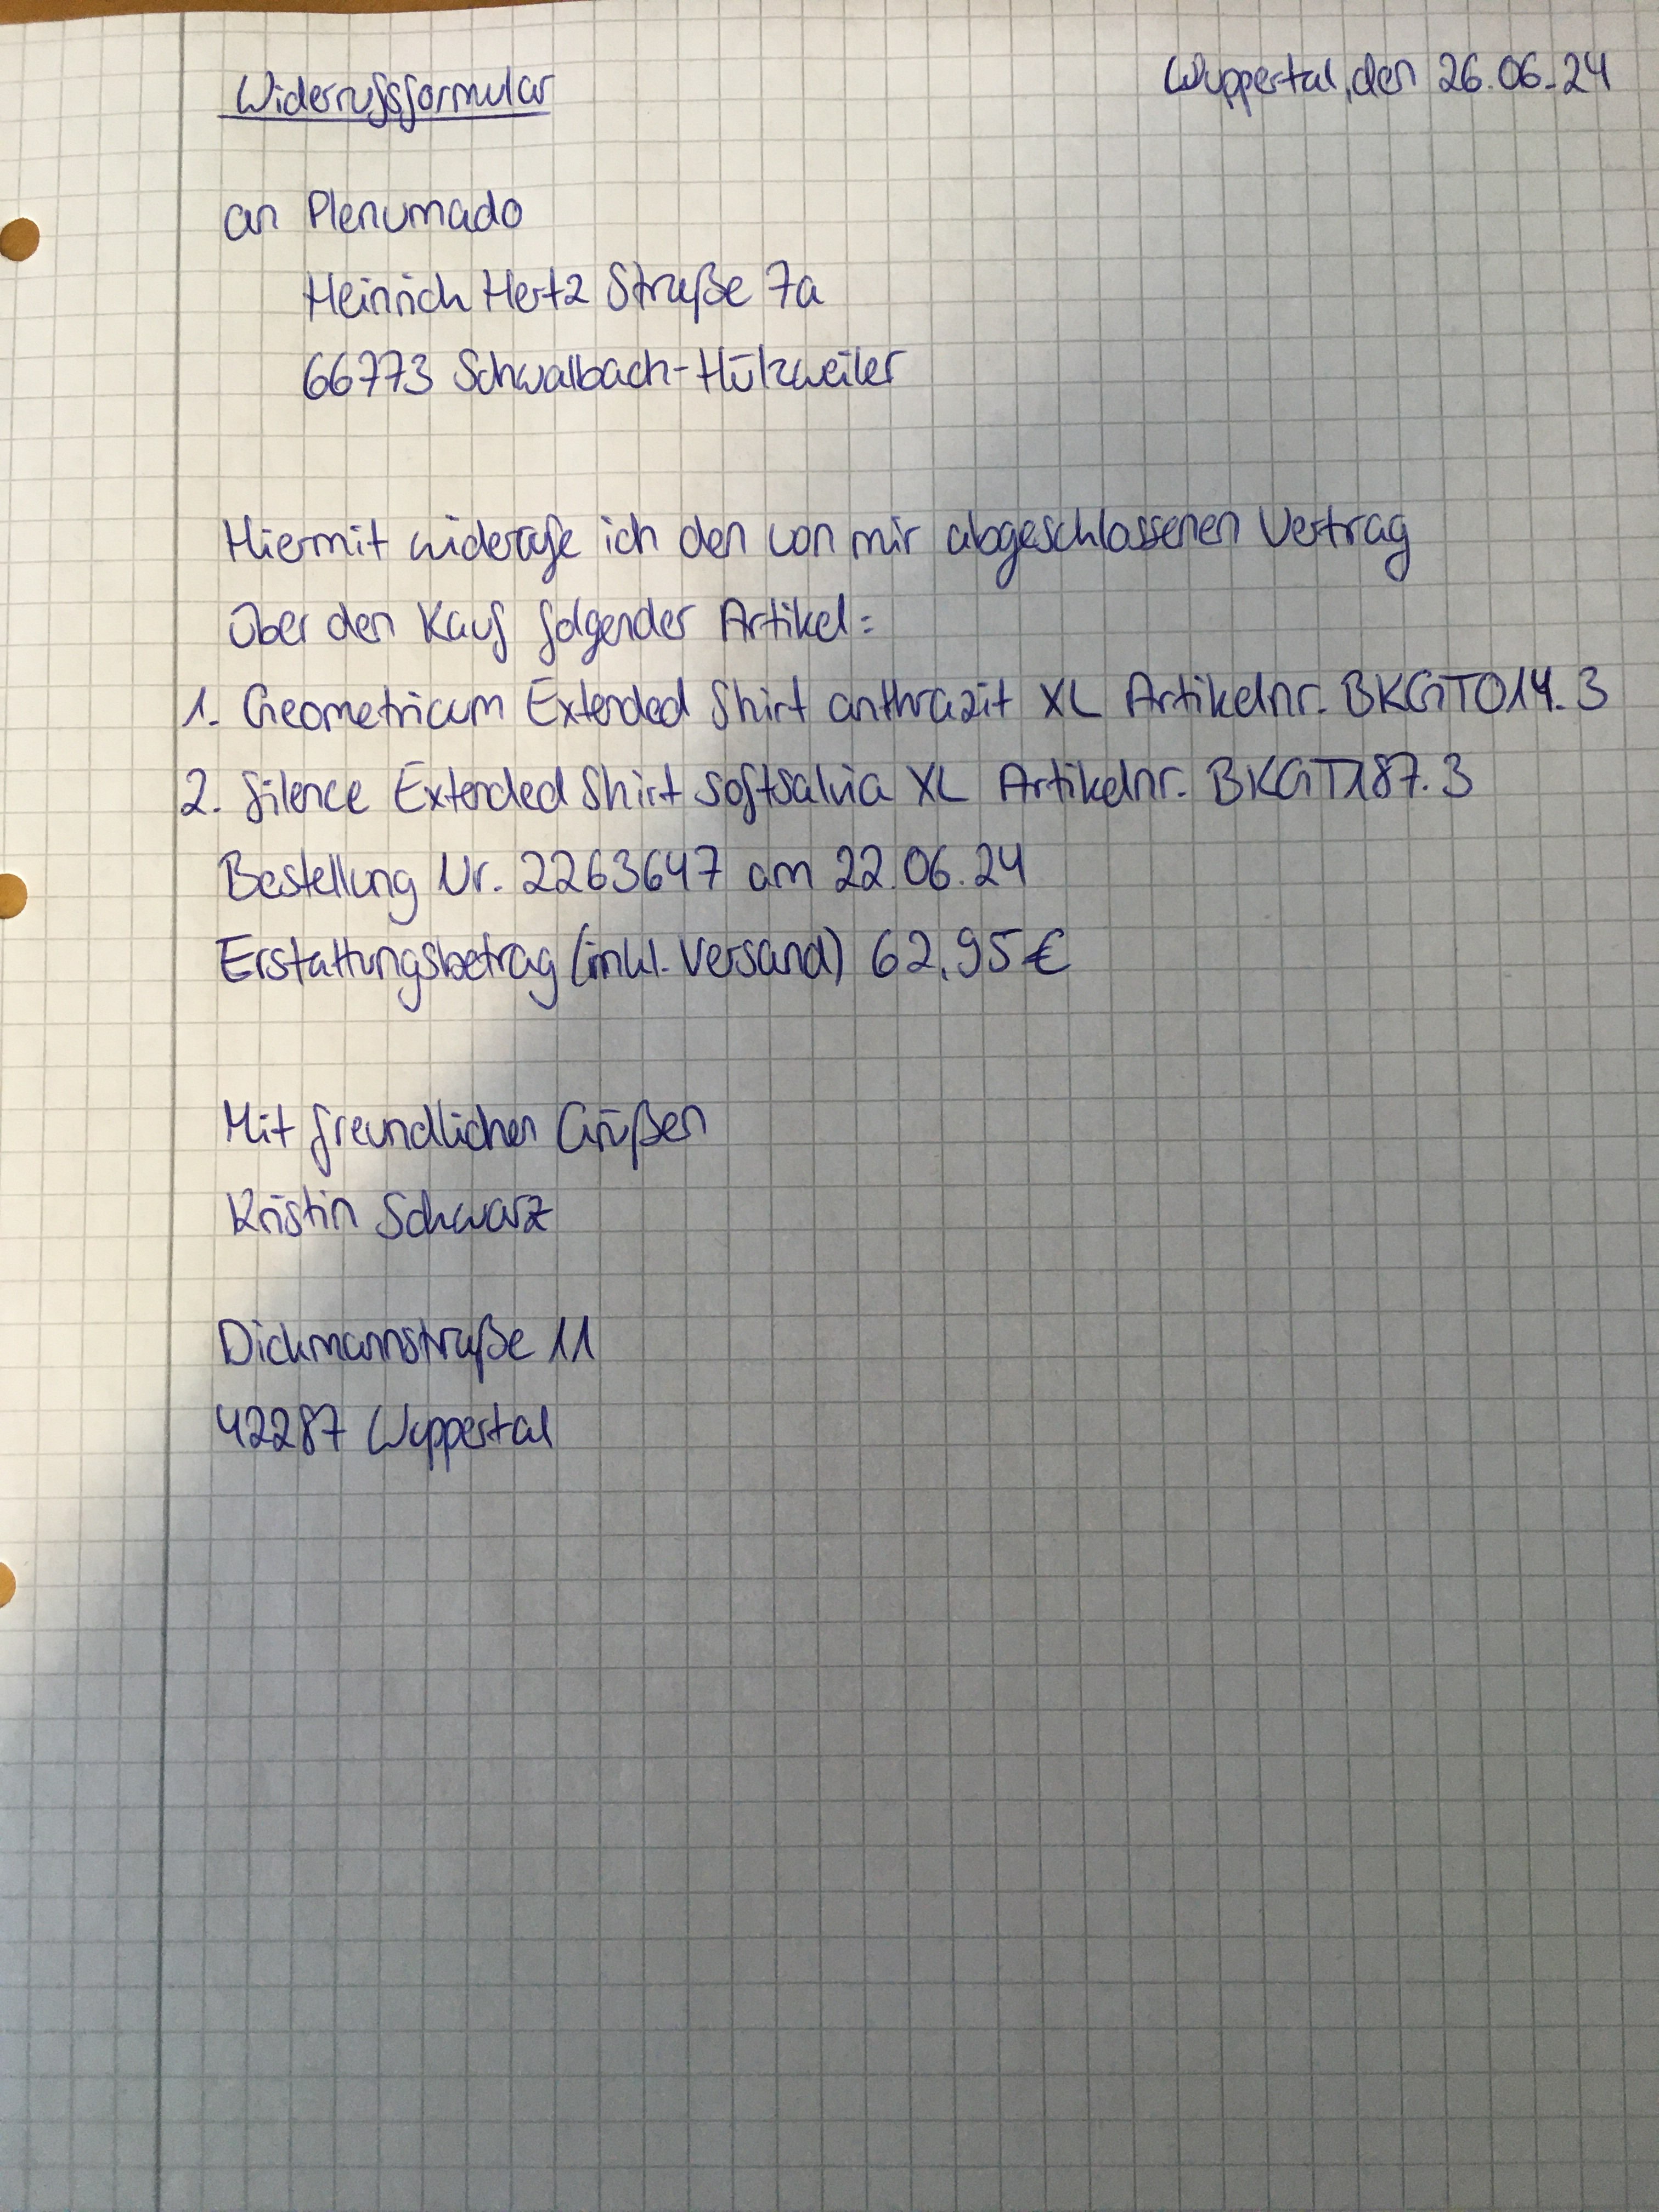 Widerrufsformular
Wuppertal, den 26.06.24
an Plenumado
Heinrich Hertz Straße 7a
66773 Schwalbach-Hülzweiler
Hiermit widerufe ich den von mir abgeschlossenen Vertrag
über den Kauf folgender Artikel:
1. Geometricum Extended Shirt anthrazit XL Artikelnr. BKGT014.3
2. Silence Extended Shirt softsalvia XL Artikelnr. BKGT187.3
Bestellung Nr. 2263647 am 22.06.24
Erstattungsbetrag (inkl. Versand) 62,95€
Mit freundlichen Grüßen
Kristin Schwarz
Dickmannstraße 11
42287 Wuppertal